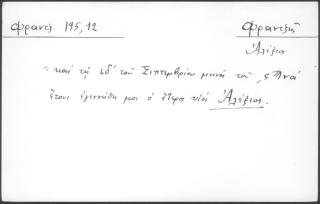 Φραντζ. 195, 12
Φραντζῆ
Ἀλέξιος
"καὶ τῇ ιδ' τοῦ Σεπτεμβρίου μηνὸς τοῦ
ἔτους ἐγεννήθη μοι ὁ ἕτερος υἱὸς Ἀλέξιος.